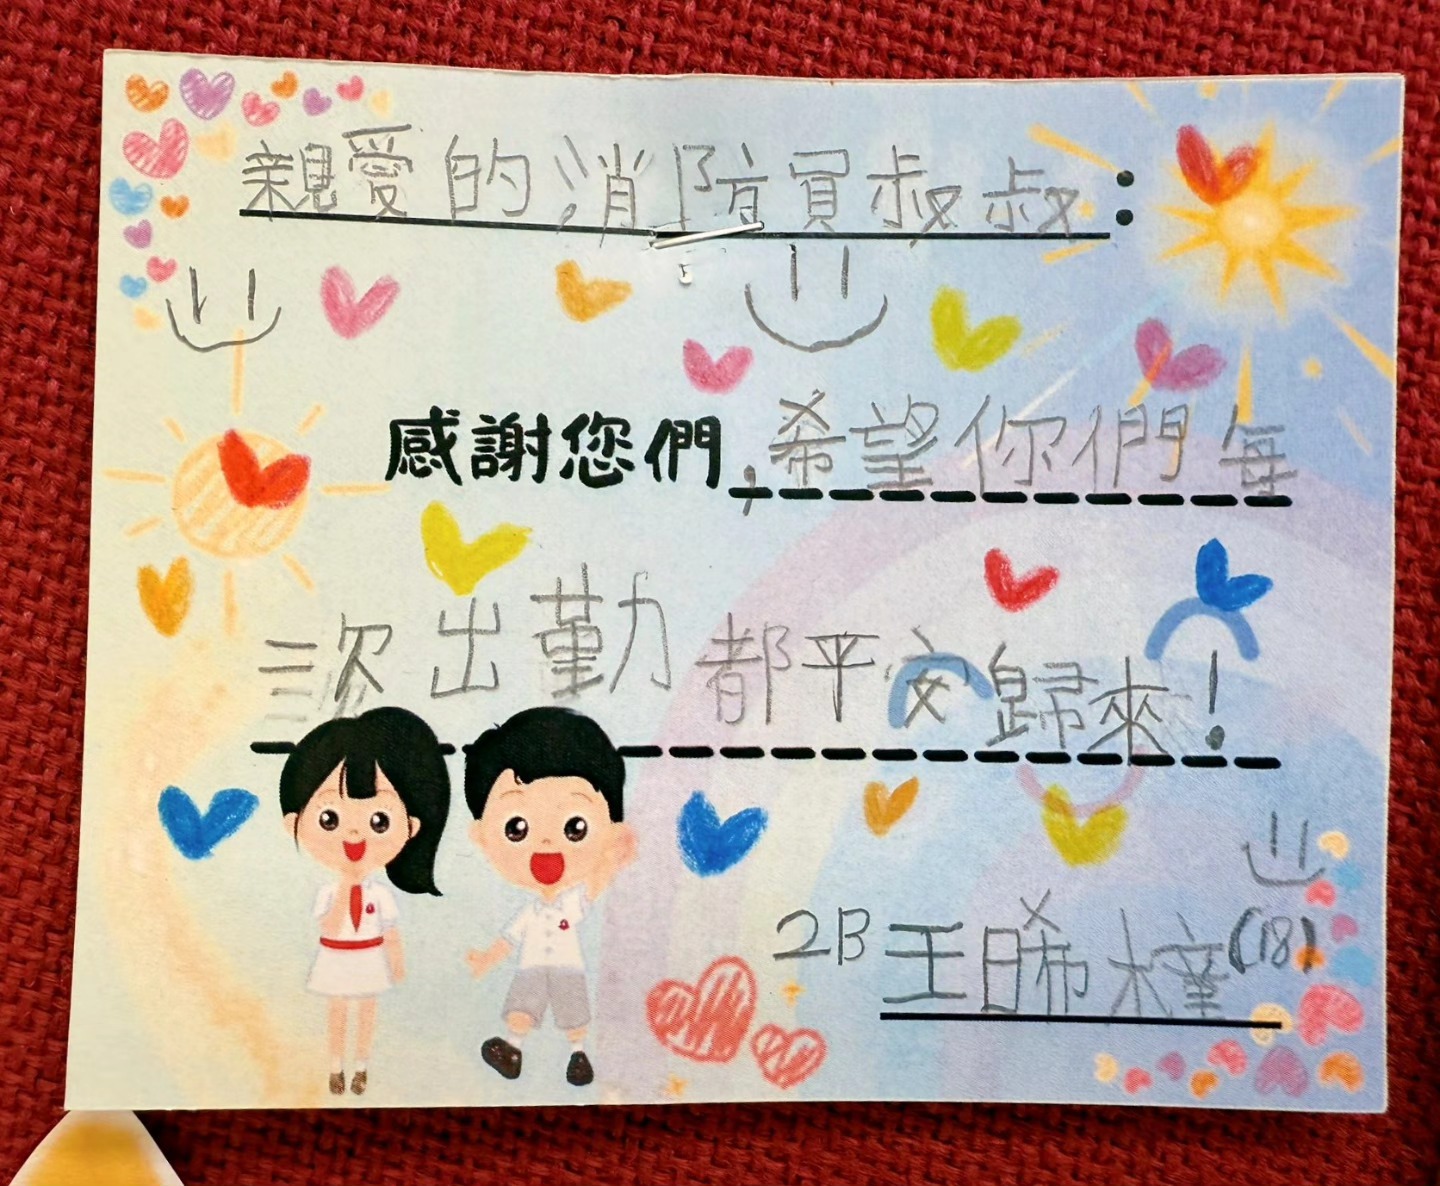 親愛的消防員叔叔:
感謝您們,希望你們每
次出勤都平安歸來!
2B 王晞橦(18)